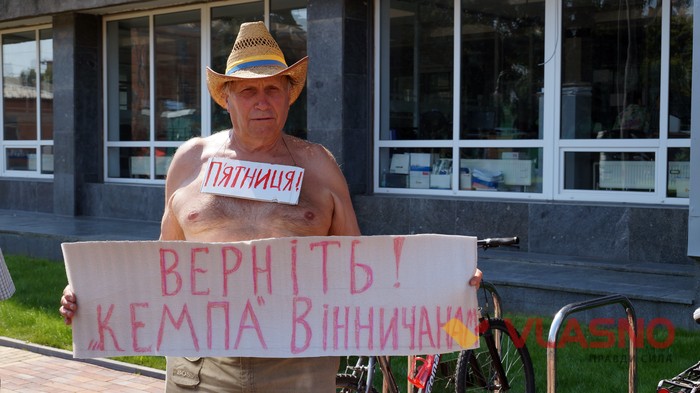 П'ЯТНИЦЯ!
ВЕРНІТЬ!
„КЕМПА" ВІННИЧАНАМ
VLASNO
ПРАВДИ СИЛА